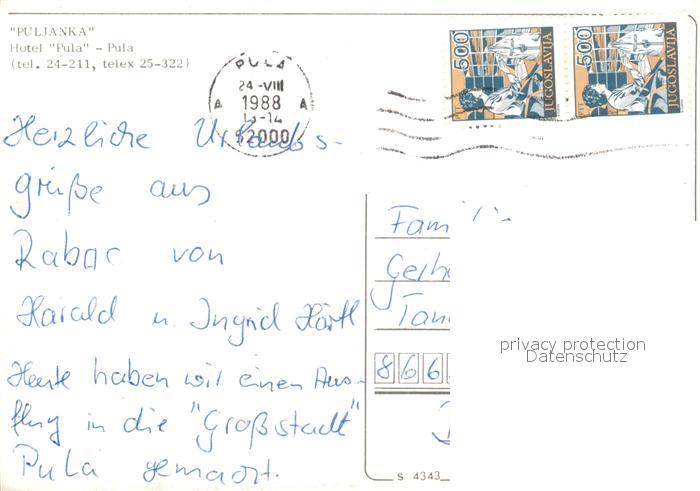 "PULJANKA"
Hotel "Pula" - Pula
(tel. 24-211, telex 25-322)
PULA
24-VIII
A 1988 A
13-14
52000
500 JUGOSLAVIJA
500 JUGOSLAVIJA
PTT
Herzliche Urlaubs-
grüße aus
Rabac von
Harald u. Ingrid Härtl
Heute haben wir einen Aus-
flug in die "Großstadt"
Pula gemacht.
Fami
Gerh
Tan
866
privacy protection
Datenschutz
S 4343